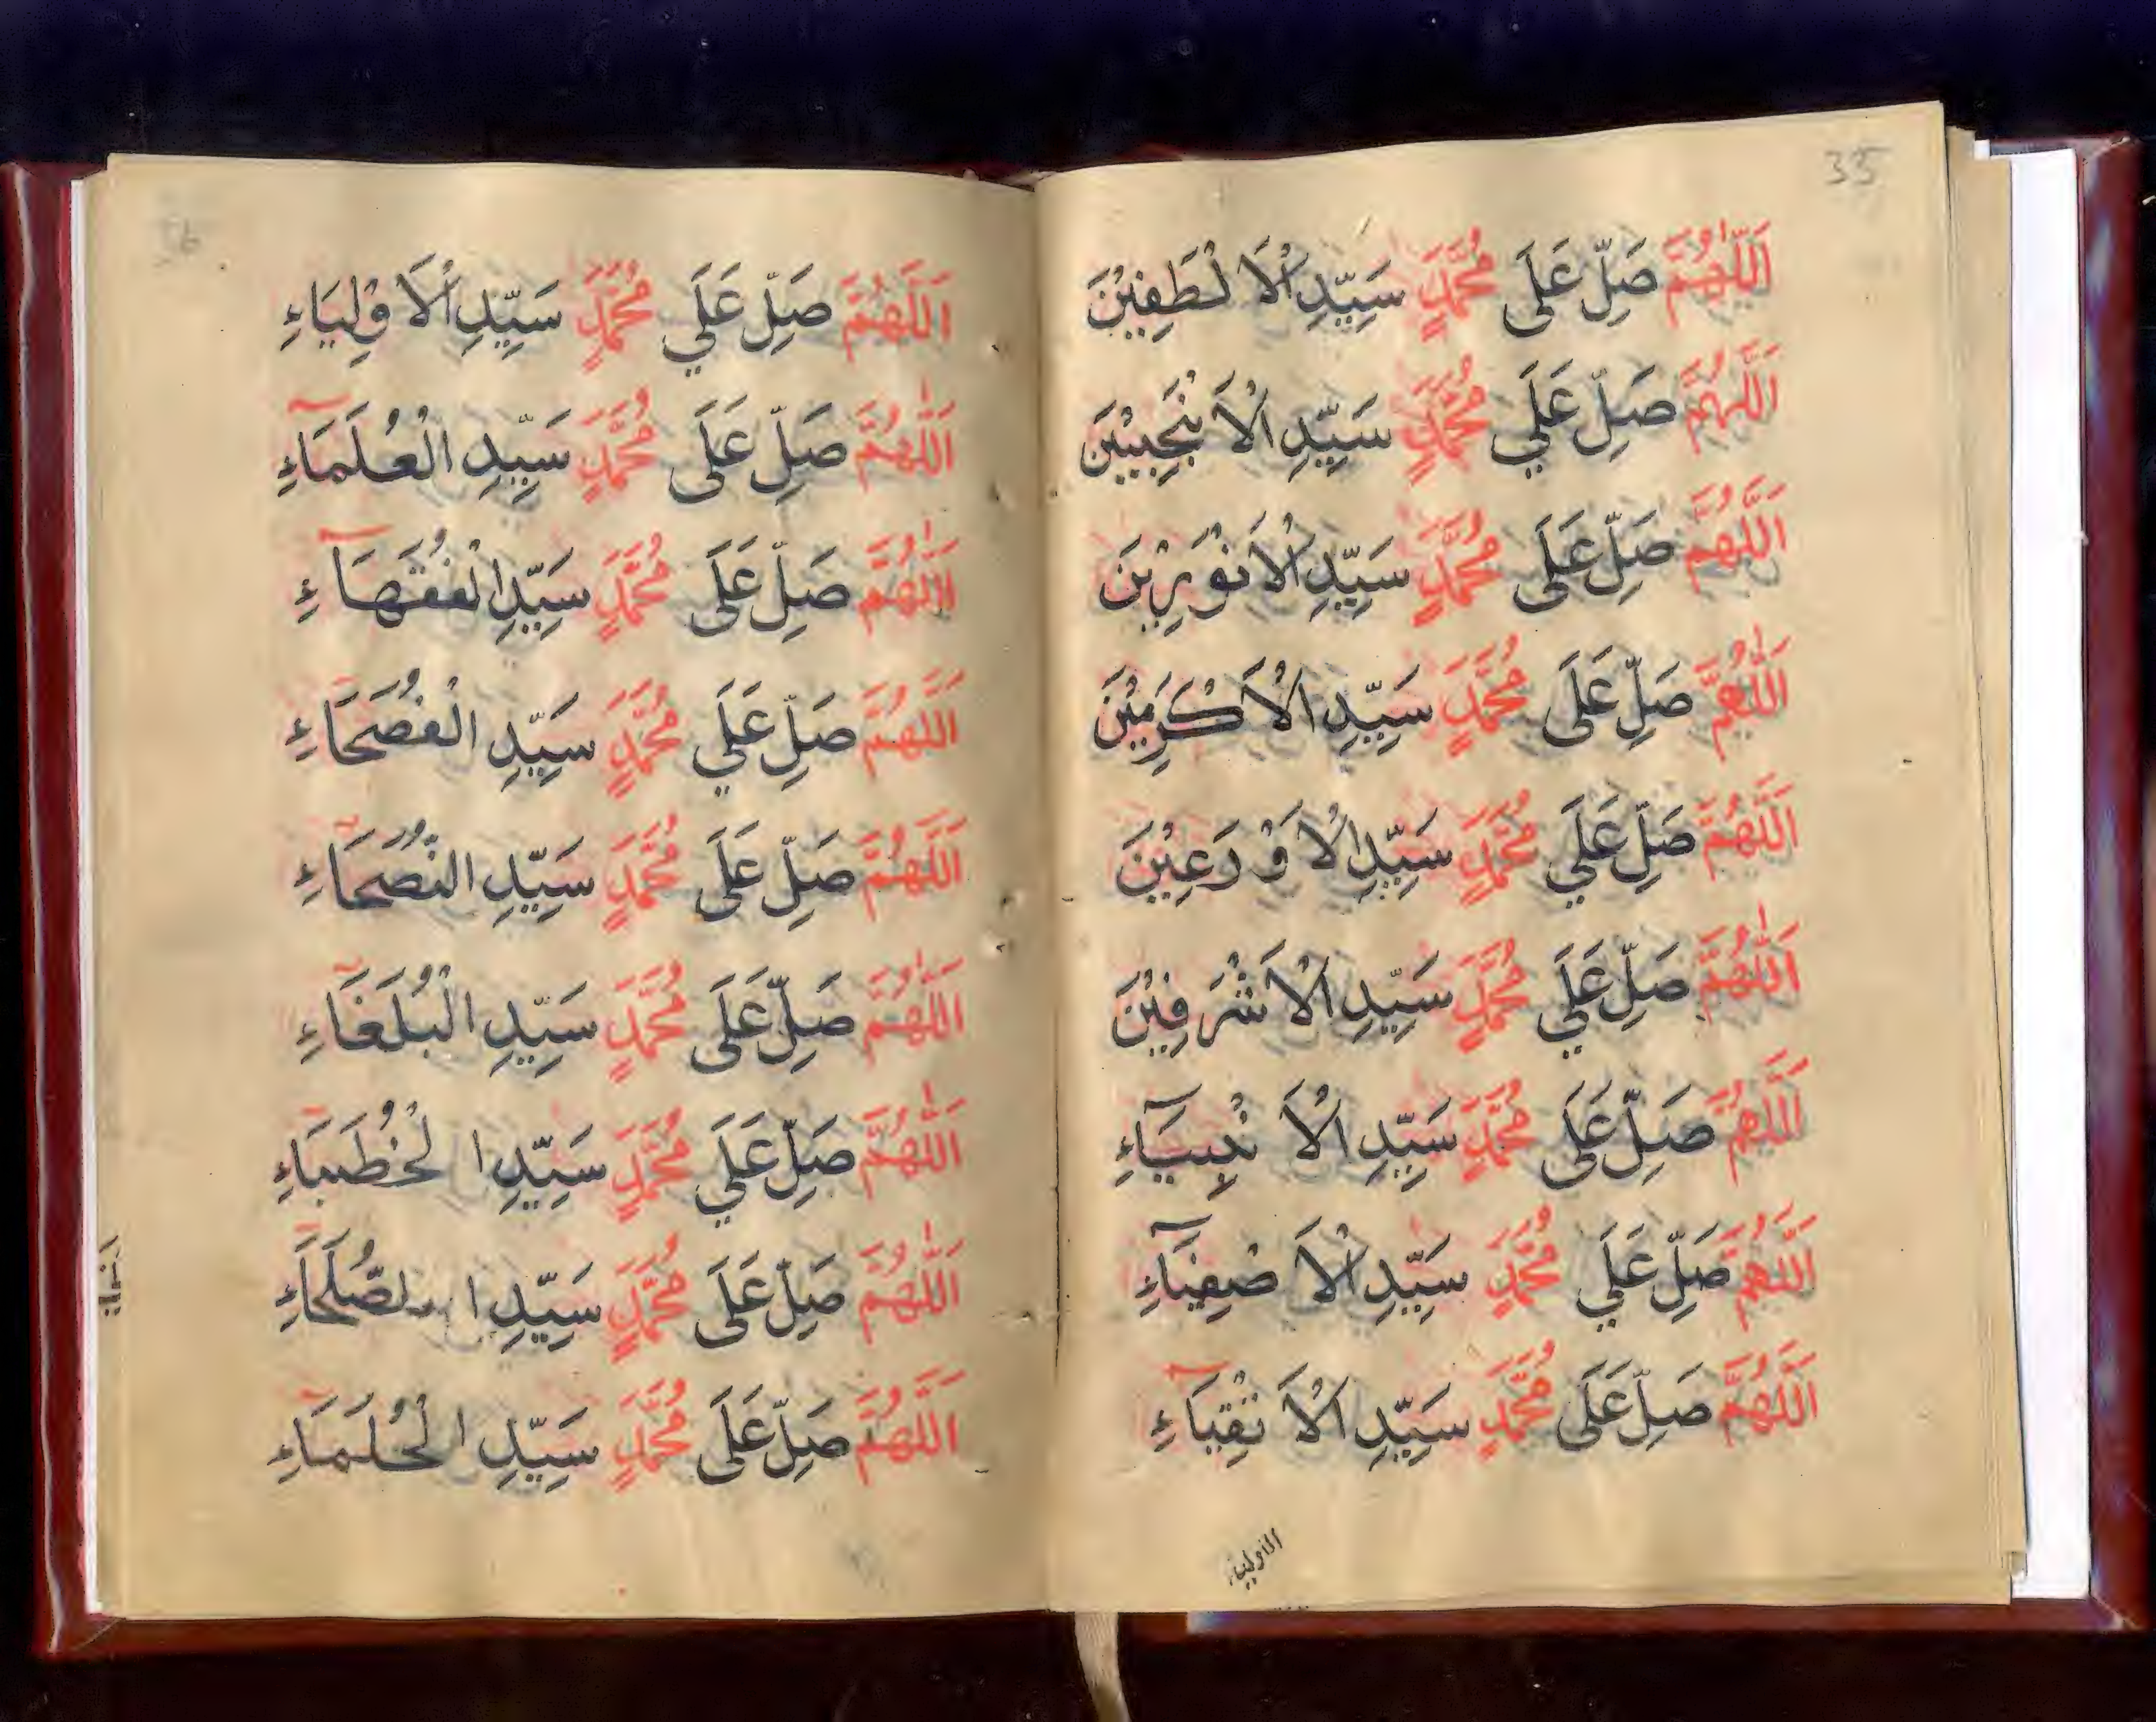 35
اَللّٰهُمَّ صَلِّ عَلَى مُحَمَّدٍ سَيِّدِ الْاَلْطَفِيْنَ
اَللّٰهُمَّ صَلِّ عَلَي مُحَمَّدٍ سَيِّدِ الْاَنْجَبِيْنَ
اَللّٰهُمَّ صَلِّ عَلَى مُحَمَّدٍ سَيِّدِ الْاَنْوَرِيْنَ
اَللّٰهُمَّ صَلِّ عَلَى مُحَمَّدٍ سَيِّدِ الْاَكْرَمِيْنَ
اَللّٰهُمَّ صَلِّ عَلَي مُحَمَّدٍ سَيِّدِ الْاَوْرَعِيْنَ
اَللّٰهُمَّ صَلِّ عَلَي مُحَمَّدٍ سَيِّدِ الْاَشْرَفِيْنَ
اَللّٰهُمَّ صَلِّ عَلَى مُحَمَّدٍ سَيِّدِ الْاَنْبِيَآءِ
اَللّٰهُمَّ صَلِّ عَلَي مُحَمَّدٍ سَيِّدِ الْاَصْفِيَآءِ
اَللّٰهُمَّ صَلِّ عَلَى مُحَمَّدٍ سَيِّدِ الْاَتْقِيَآءِ
36
اَللّٰهُمَّ صَلِّ عَلَي مُحَمَّدٍ سَيِّدِ الْاَوْلِيَاءِ
اَللّٰهُمَّ صَلِّ عَلَى مُحَمَّدٍ سَيِّدِ الْعُلَمَآءِ
اَللّٰهُمَّ صَلِّ عَلَى مُحَمَّدٍ سَيِّدِ الْفُقَهَآءِ
اَللّٰهُمَّ صَلِّ عَلَي مُحَمَّدٍ سَيِّدِ الْفُصَحَاءِ
اَللّٰهُمَّ صَلِّ عَلَى مُحَمَّدٍ سَيِّدِ النُّصَحَآءِ
اَللّٰهُمَّ صَلِّ عَلَى مُحَمَّدٍ سَيِّدِ الْبُلَغَآءِ
اَللّٰهُمَّ صَلِّ عَلَي مُحَمَّدٍ سَيِّدِ الْخُطَبَآءِ
اَللّٰهُمَّ صَلِّ عَلَى مُحَمَّدٍ سَيِّدِ الصُّلَحَآءِ
اَللّٰهُمَّ صَلِّ عَلَى مُحَمَّدٍ سَيِّدِ الْحُلَمَآءِ